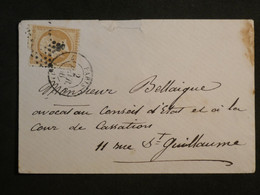 Monsieur Bellaigue
avocat au Conseil d'Etat et à la
Cour de Cassation
11 rue St Guillaume